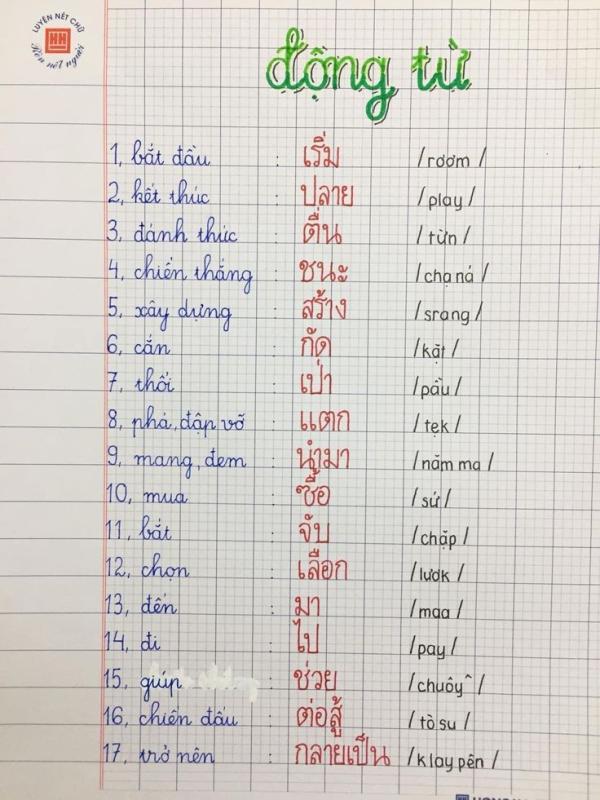 LUYỆN NÉT CHỮ
HH
Rèn nết người
động từ
1, bắt đầu : เริ่ม /rơơm/
2, kết thúc : ปลาย /play/
3, đánh thức : ตื่น /từn/
4, chiến thắng : ชนะ /chạ ná/
5, xây dựng : สร้าง /srang/
6, cắn : กัด /kặt/
7, thổi : เป่า /pầu/
8, phá, đập vỡ : แตก /tẹk/
9, mang, đem : นำมา /năm ma/
10, mua : ซื้อ /sứ/
11, bắt : จับ /chặp/
12, chọn : เลือก /lươk/
13, đến : มา /maa/
14, đi : ไป /pay/
15, giúp : ช่วย /chuôy^/
16, chiến đấu : ต่อสู้ /tò su/
17, trở nên : กลายเป็น /klay pên/